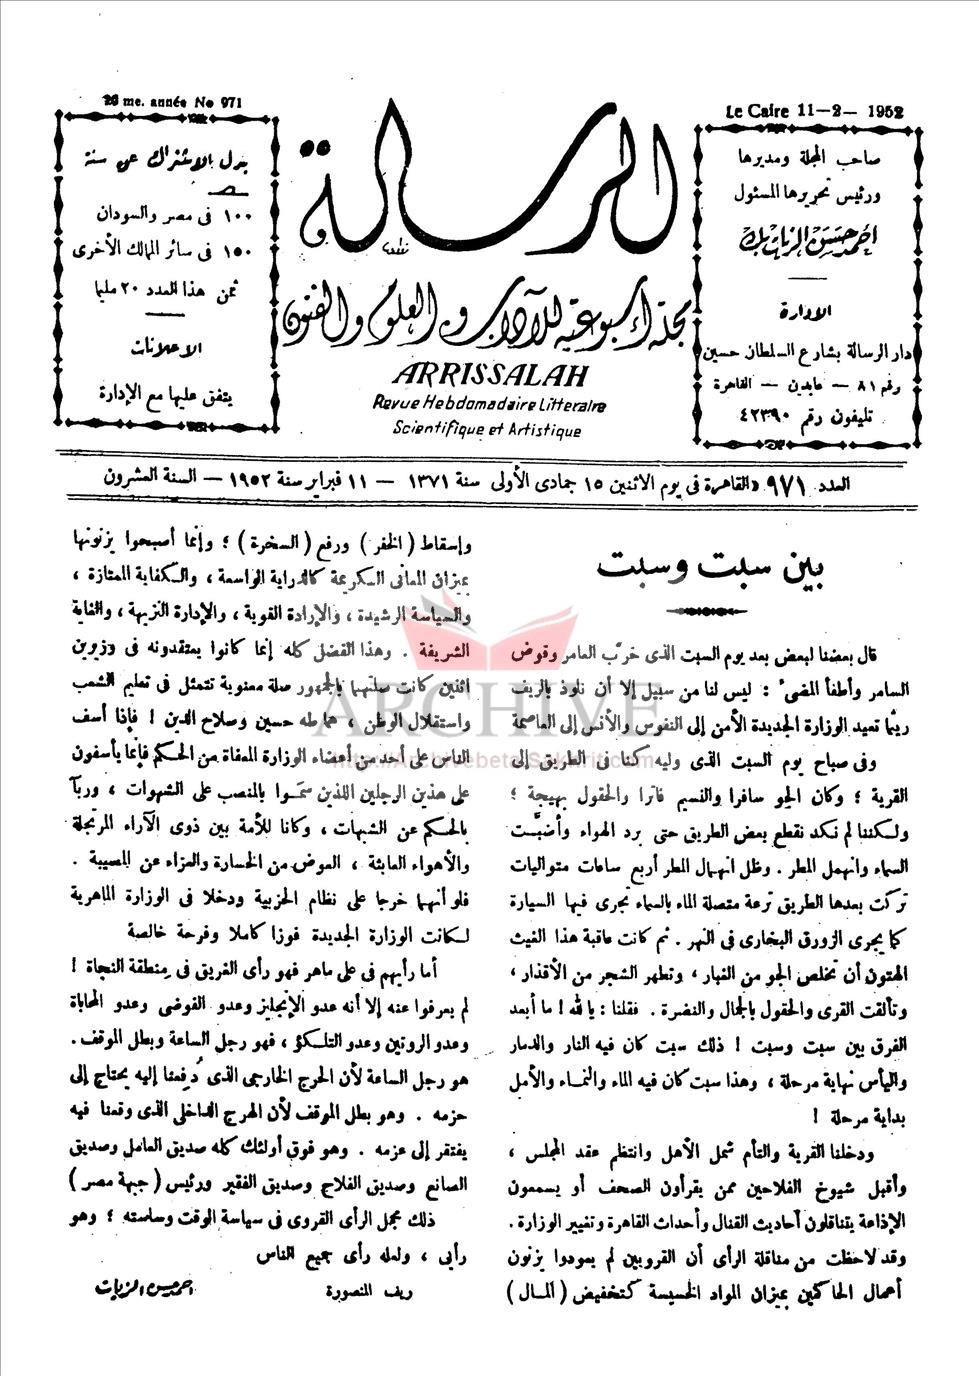 20 me. année No 971
Le Caire 11-2- 1952
صاحب المجلة ومديرها
ورئيس تحريرها المسئول
احمد حسن الزيات بك
الادارة
دار الرسالة بشارع السلطان حسين
رقم ٨١ — عابدين — القاهرة
تليفون رقم ٤٢٣٩٠
الرسالة
مجلة أسبوعية للآداب والعلوم والفنون
ARRISSALAH
Revue Hebdomadaire Litteraire
Scientifique et Artistique
بدل الاشتراك عن سنة
١٠٠ فى مصر والسودان
١٥٠ فى سائر الممالك الأخرى
ثمن هذا العدد ٢٠ مليما
الاعلانات
يتفق عليها مع الإدارة
العدد ٩٧١ القاهرة فى يوم الاثنين ١٥ جمادى الأولى سنة ١٣٧١ — ١١ فبراير سنة ١٩٥٢ — السنة العشرون
بين سبت وسبت
قال بعضنا لبعض بعد يوم السبت الذى خرّب العامر وقوض
السامر وأطفأ المضىء : ليس لنا من سبيل إلا أن نلوذ بالريف
ريثما تعيد الوزارة الجديدة الأمن إلى النفوس والأنس إلى العاصمة
وفى صباح يوم السبت الذى وليه كنا فى الطريق إلى
القرية ؛ وكان الجو سافرا والنسيم فاترا والحقول بهيجة ؛
ولكننا لم نكد نقطع بعض الطريق حتى برد الهواء وأضبّت
السماء وانهمل المطر . وظل انهمال المطر أربع ساعات متواليات
تركت بعدها الطريق ترعة متصلة الماء بالسماء تجرى فيها السيارة
كما يجرى الزورق البخارى فى النهر . ثم كانت عاقبة هذا الغيث
الهتون أن تخلص الجو من الغبار ، وتطهر الشجر من الأقذار ،
وتألقت القرى والحقول بالجمال والنضرة . فقلنا : يالله ! ما أبعد
الفرق بين سبت وسبت ! ذلك سبت كان فيه النار والدمار
واليأس نهاية مرحلة ، وهذا سبت كان فيه الماء والنماء والأمل
بداية مرحلة !
ودخلنا القرية والتأم شمل الأهل وانتظم عقد المجلس ،
وأقبل شيوخ الفلاحين ممن يقرأون الصحف أو يسمعون
الإذاعة يتناقلون أحاديث القنال وأحداث القاهرة وتغيير الوزارة .
وقد لاحظت من مناقلة الرأى أن القرويين لم يعودوا يزنون
أعمال الحاكمين بميزان المواد الخسيسة كتخفيض ( المال )
وإسقاط ( الخفر ) ورفع ( السخرة ) ؛ وإنما أصبحوا يزنونها
بميزان المعانى الكريمة كالدراية الواسعة ، والكفاية الممتازة ،
والسياسة الرشيدة ، والإرادة القوية ، والإدارة النزيهة ، والغاية
الشريفة . وهذا الفضل كله إنما كانوا يعتقدونه فى وزيرين
اثنين كانت صلتهما بالجمهور صلة معنوية تتمثل فى تعليم الشعب
واستقلال الوطن ، هما طه حسين وصلاح الدين ! فإذا أسف
الناس على أحد من أعضاء الوزارة المعفاة من الحكم فإنما يأسفون
على هذين الرجلين اللذين سمَوا بالمنصب على الشهوات ، وربآ
بالحكم عن الشبهات ، وكانا للأمة بين ذوى الآراء المرتجلة
والأهواء العابثة ، العوض من الخسارة والعزاء عن المصيبة .
فلو أنهما خرجا على نظام الحزبية ودخلا فى الوزارة الماهرية
لكانت الوزارة الجديدة فوزا كاملا وفرحة خالصة
أما رأيهم فى على ماهر فهو رأى الغريق فى منطقة النجاة !
لم يعرفوا عنه إلا أنه عدو الإنجليز وعدو الفوضى وعدو المحاباة
وعدو الروتين وعدو التلكؤ ، فهو رجل الساعة وبطل الموقف .
هو رجل الساعة لأن الحرج الخارجى الذى دُفعنا إليه يحتاج إلى
حزمه . وهو بطل الموقف لأن الهرج الداخلى الذى وقعنا فيه
يفتقر إلى عزمه . وهو فوق أولئك كله صديق العامل وصديق
الصانع وصديق الفلاح وصديق الفقير ورئيس ( جبهة مصر )
ذلك مجمل الرأى القروى فى سياسة الوقت وساسته ؛ وهو
رأيى ، ولعله رأى جميع الناس
ريف المنصورة
احمد حسن الزيات
ARCHIVE
http://Archivebeta.Sakhrit.com